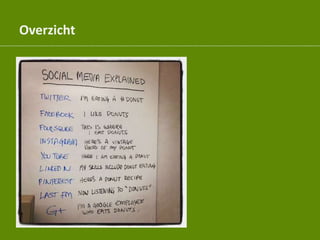 Overzicht
SOCIAL MEDIA EXPLAINED
TWITTER I'M EATING A # DONUT
FACEBOOK I LIKE DONUTS
FOURSQUARE THIS IS WHERE
I EAT DONUTS
INSTAGRAM HERE'S A VINTAGE
PHOTO OF MY DONUT
YOU TUBE HERE I AM EATING A DONUT
LINKED IN MY SKILLS INCLUDE DONUT EATING
PINTEREST HERE'S A DONUT RECIPE
LAST FM NOW LISTENING TO "DONUTS"
G+ I'M A GOOGLE EMPLOYEE
WHO EATS DONUTS.